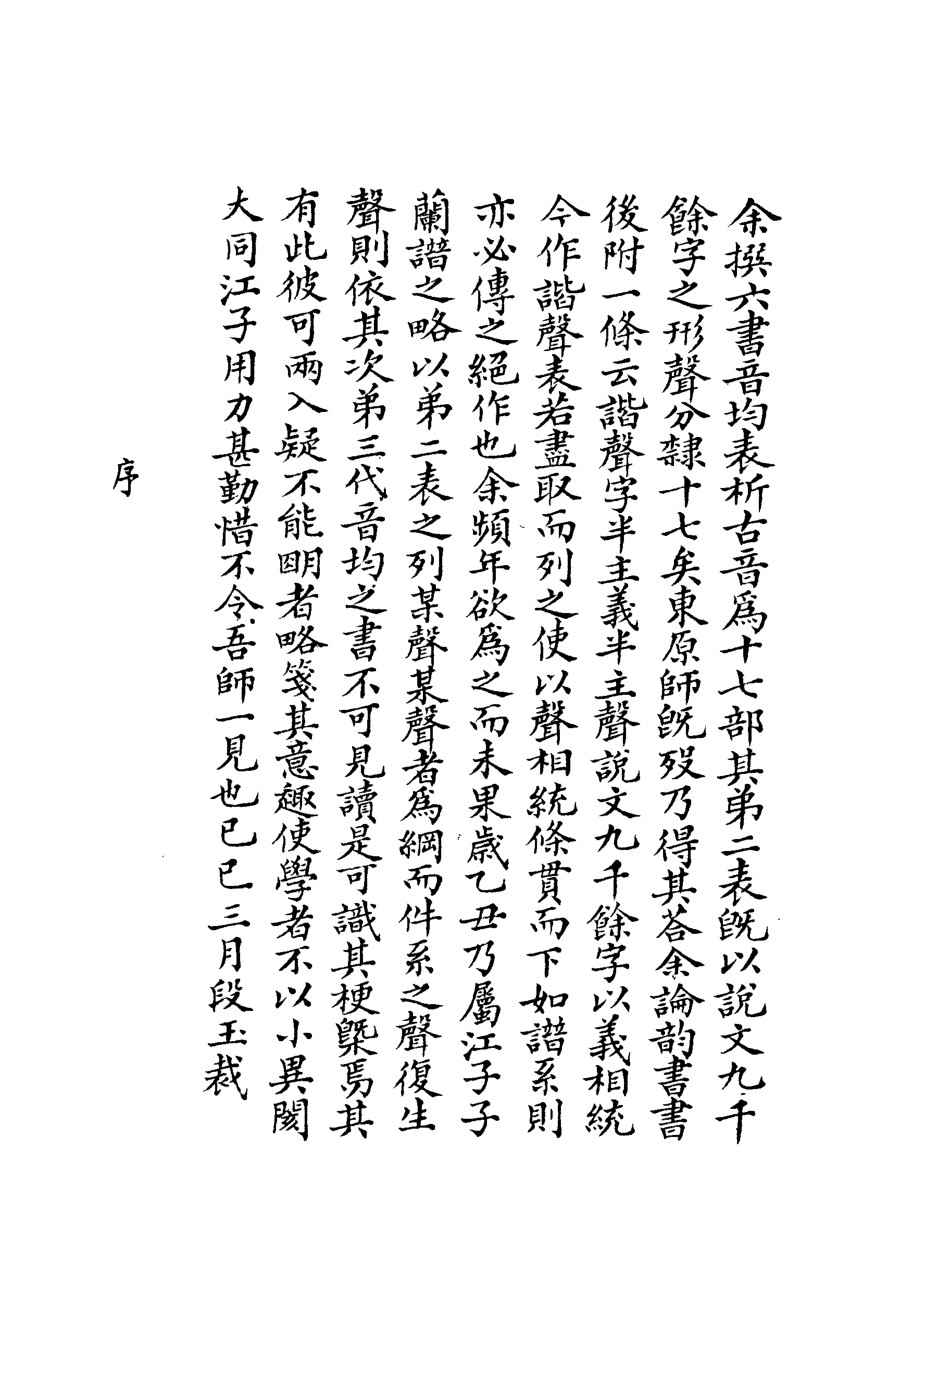 余撰六書音均表析古音爲十七部其弟二表旣以說文九千
餘字之形聲分隸十七矣東原師旣歿乃得其荅余論韵書書
後附一條云諧聲字半主義半主聲說文九千餘字以義相統
今作諧聲表若盡取而列之使以聲相統條貫而下如譜系則
亦必傳之絕作也余頻年欲爲之而未果歲乙丑乃屬江子子
蘭譜之略以弟二表之列某聲某聲者爲綱而件系之聲復生
聲則依其次弟三代音均之書不可見讀是可識其梗槩焉其
有此彼可兩入疑不能明者略箋其意趣使學者不以小異閡
大同江子用力甚勤惜不令吾師一見也己巳三月段玉裁
序